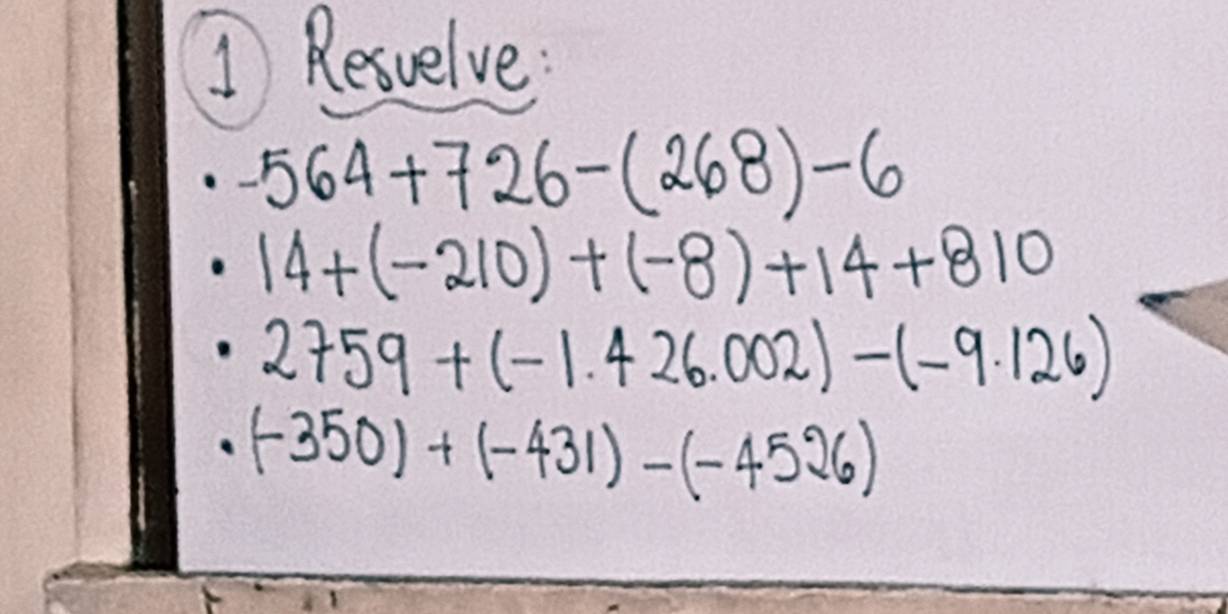 1 Resuelve:
• -564+726-(268)-6
• 14+(-210)+(-8)+14+810
• 2759+(-1.426.002)-(-9.126)
• (-350)+(-431)-(-4526)